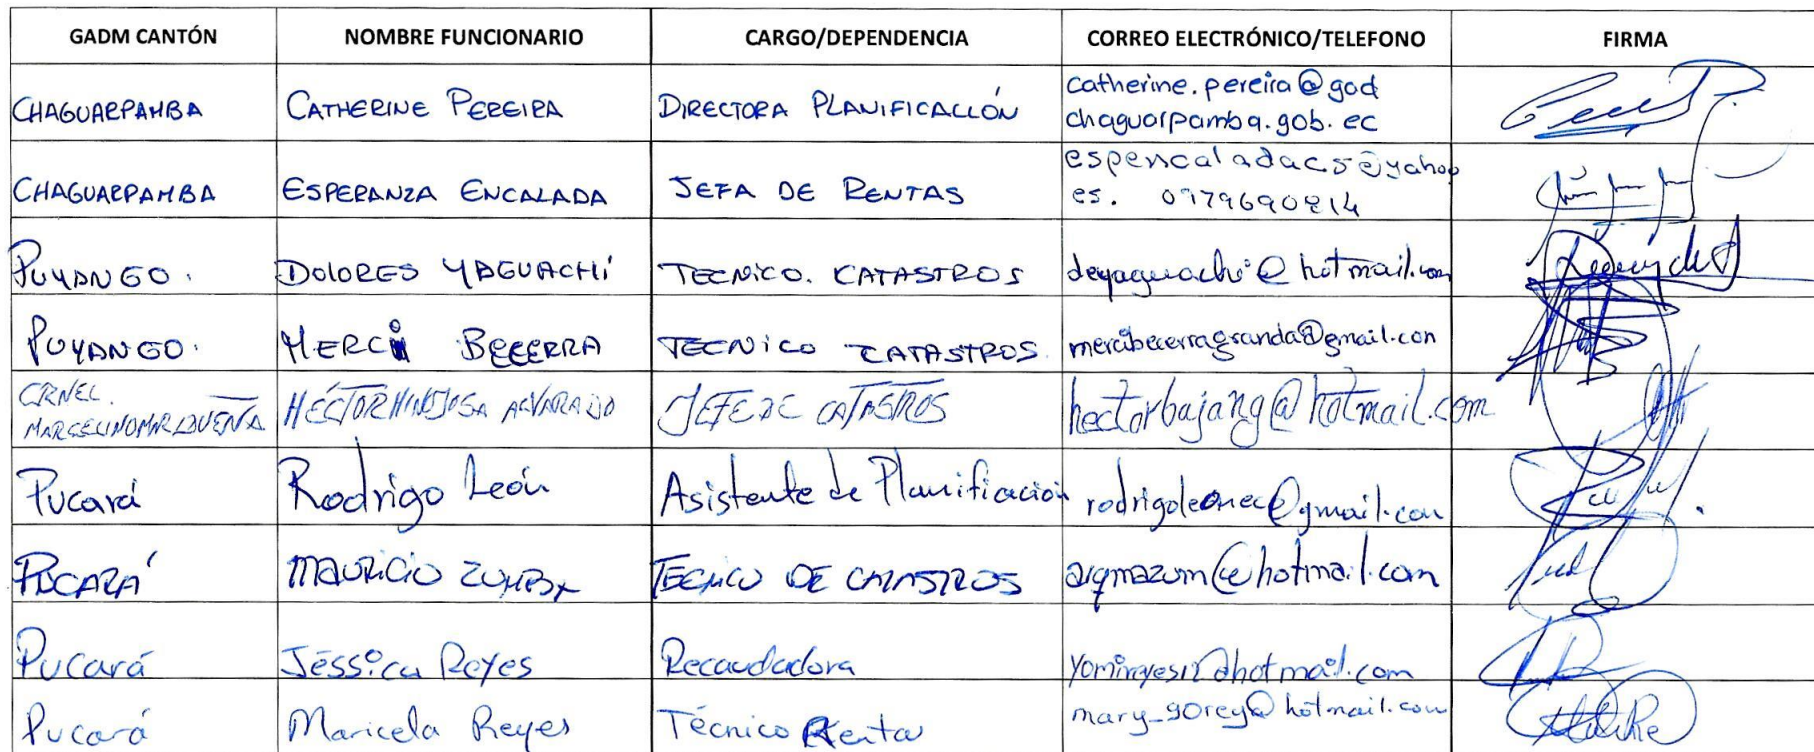 GADM CANTÓN NOMBRE FUNCIONARIO CARGO/DEPENDENCIA CORREO ELECTRÓNICO/TELEFONO FIRMA
CHAGUARPAMBA CATHERINE PEREIRA DIRECTORA PLANIFICACIÓN catherine.pereira@gad
chaguarpamba.gob.ec
CHAGUARPAMBA ESPERANZA ENCALADA JEFA DE RENTAS espencaladacs@yahoo
es. 0979690814
PUYANGO. DOLORES YAGUACHÍ TECNICO. CATASTROS deyaguachi@hotmail.com
PUYANGO. MERCI BECERRA TECNICO CATASTROS. mercibecerragranda@gmail.com
CRNEL.
MARCELINO MARIDUEÑA HÉCTOR HINOJOSA ALVARADO JEFE DE CATASTROS hectorbajang@hotmail.com
Pucará Rodrigo León Asistente de Planificación rodrigoleonec@gmail.com
PUCARÁ MAURICIO ZUMBA TECNICO DE CATASTROS arqmazum@hotmail.com
Pucará Jéssica Reyes Recaudadora @hotmail.com
Pucará Maricela Reyes Técnico Renta mary_90rey@hotmail.com